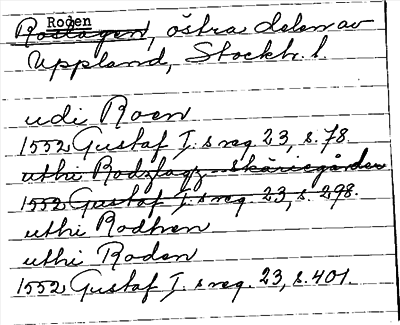 Roden
Roslagen, östra delen av
Uppland, Stockh. l.
udi Roen
1552 Gustaf I:s reg. 23, s. 78.
uthi Rodzlagz skäriegården
1552 Gustaf I:s reg. 23, s. 298.
uthi Rodhen
uthi Roden
1552 Gustaf I:s reg. 23, s. 401.